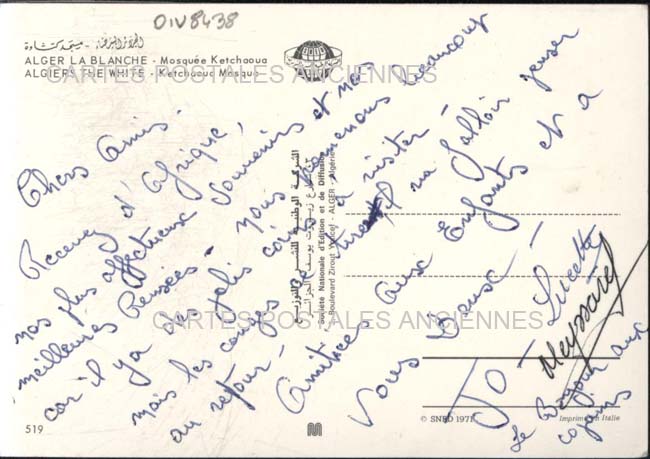 OIV8438
الجزائر البيضاء - مسجد كتشاوة
ALGER LA BLANCHE - Mosquée Ketchaoua
ALGIERS THE WHITE - Ketchaoua Mosque
CARTES POSTALES ANCIENNES
Chers Amis.
Recevez d'Afrique,
nos plus affectueux Souvenirs et nos
meilleures Pensées - nous prenons beaucoup
car il y a des jolis coins à visiter -
mais les congés se tirent il va falloir penser
au retour -
Amitiés aux Enfants et à
Vous Deux -
Jo - Lucette
Meyssard
Le Bonjour aux
copains
الشركة الوطنية للنشر والتوزيع
شارع زيروت يوسف الجزائر
Société Nationale d'Edition et de Diffusion
Boulevard Zirout Youcef - ALGER - Algérie
CARTES POSTALES ANCIENNES
519
© SNED 1971
Imprimé en Italie